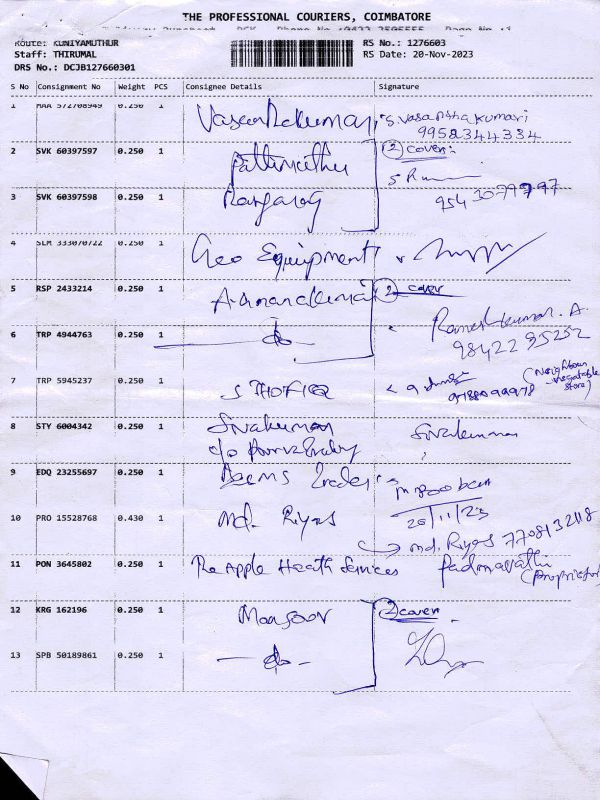 THE PROFESSIONAL COURIERS, COIMBATORE
Route: KUNIYAMUTHUR RS No.: 1276603
Staff: THIRUMAL RS Date: 20-Nov-2023
DRS No.: DCJB127660301
S No Consignment No Weight PCS Consignee Details Signature
1 MAA 572708949 0.250 1 Vasanthakumari S Vasanthakumari
9958344334
2 SVK 60397597 0.250 1 Pattimuthu 2 cover:
3 SVK 60397598 0.250 1 Rangaraj
4 SLM 333070722 0.250 1 Geo Equipment
5 RSP 2433214 0.250 1 2 cover
Rameshkumar. A.
98422 95252
6 TRP 4944763 0.250 1 do
7 TRP 5945237 0.250 1 S THOFIQ (Neighbour vegetable store)
8 STY 6004342 0.250 1 Sivakumar Sivakumar
c/o
9 EDQ 23255697 0.250 1 Traders
20/11/23
10 PRO 15528768 0.430 1 md. Riyas
md. Riyas 7708132118
11 PON 3645802 0.250 1 The Apple Health Services Padmavathi
(Proprietor)
12 KRG 162196 0.250 1 Mansoor 2 cover
13 SPB 50189861 0.250 1 do